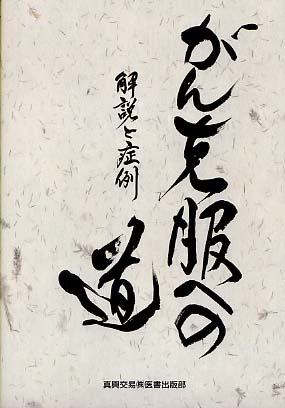 がん克服への
道
解説と症例
真興交易㈱医書出版部